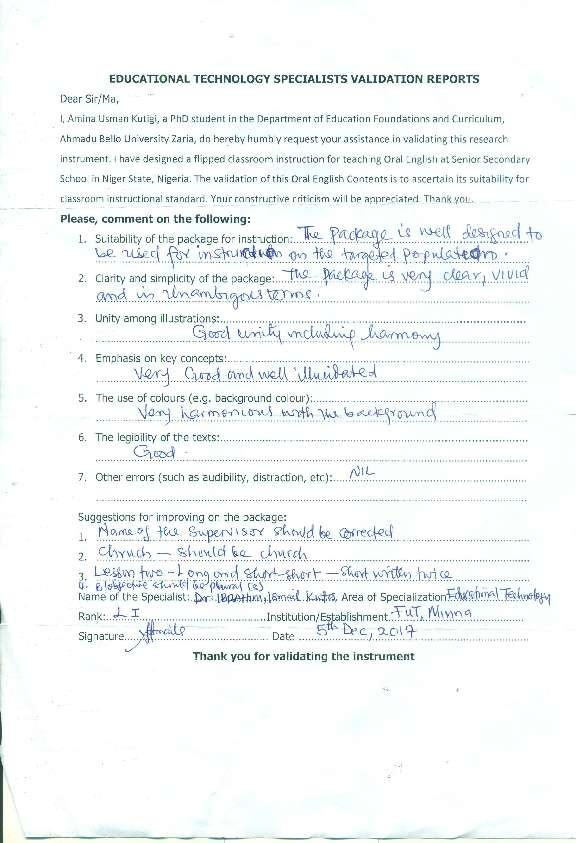 EDUCATIONAL TECHNOLOGY SPECIALISTS VALIDATION REPORTS
Dear Sir/Ma,
I, Amina Usman Kutigi, a PhD student in the Department of Education Foundations and Curriculum,
Ahmadu Bello University Zaria, do hereby humbly request your assistance in validating this research
instrument. I have designed a flipped classroom instruction for teaching Oral English at Senior Secondary
School in Niger State, Nigeria. The validation of this Oral English Contents is to ascertain its suitability for
classroom instructional standard. Your constructive criticism will be appreciated. Thank you.
Please, comment on the following:
1. Suitability of the package for instruction: The Package is well designed to
be used for instruction on the targeted population.
2. Clarity and simplicity of the package: The package is very clear, vivid
and in unambigous terms.
3. Unity among illustrations:
Good unity including harmony
4. Emphasis on key concepts:
Very Good and well illucidated
5. The use of colours (e.g. background colour):
Very harmonious with the background
6. The legibility of the texts:
Good.
7. Other errors (such as audibility, distraction, etc): NIL
Suggestions for improving on the package:
1. Name of the Supervisor should be corrected
2. Chruch — should be church
3. Lesson two - Long and short-short — short written twice
4. objective should be plural (s)
Name of the Specialist: Dr. IBRAHIM, Ismail Kuta, Area of Specialization Educational Technology
Rank: L I Institution/Establishment. FUT, Minna
Signature Date 5th Dec, 2017
Thank you for validating the instrument